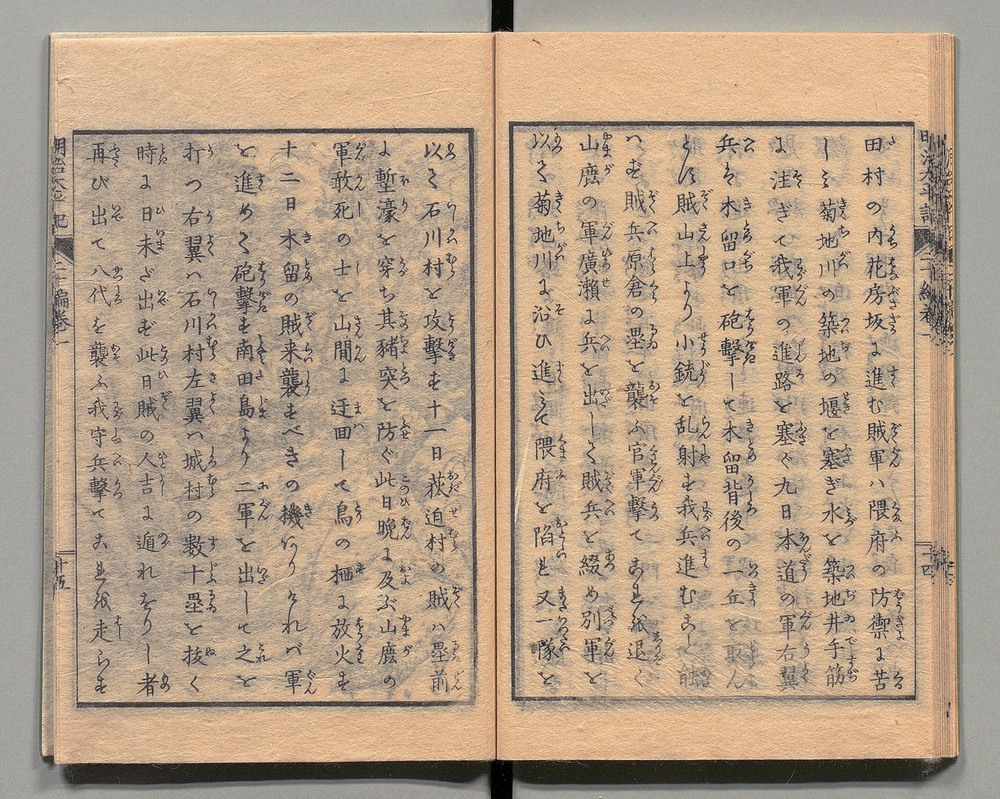 田村の内花房坂に進む賊軍ハ隈府の防禦に苦
しミ菊地川の築地の堰を塞ぎ水を築地井手筋
に注ぎて我軍の進路を塞ぐ九日本道の軍右翼
兵を木留口を砲撃して木留背後の一丘を取ん
とバ賊山上より小銃を乱射す我兵進むこと能
へず賊兵原倉の塁を襲ふ官軍撃てこれを退く
山鹿の軍廣瀬に兵を出して賊兵を綴め別軍を
以て菊地川に沿ひ進ミて隈府を陥る又一隊を
明治太平記
二十編巻一
十四
以て石川村を攻撃す十一日荻迫村の賊ハ塁前
に塹濠を穿ち其猪突を防ぐ此日晩に及ぶ山鹿の
軍敢死の士を山間に迂回して鳥の栖に放火す
十二日木留の賊来襲すべきの機ありければ軍
を進めて砲撃す南田島より二軍を出して之を
打つ右翼ハ石川村左翼ハ城村の数十塁を抜く
時に日未だ出ず此日賊の人吉に遁れをりし者
再び出て八代を襲ふ我守兵撃てこれを走らす
明治太平記
二十編巻一
十五